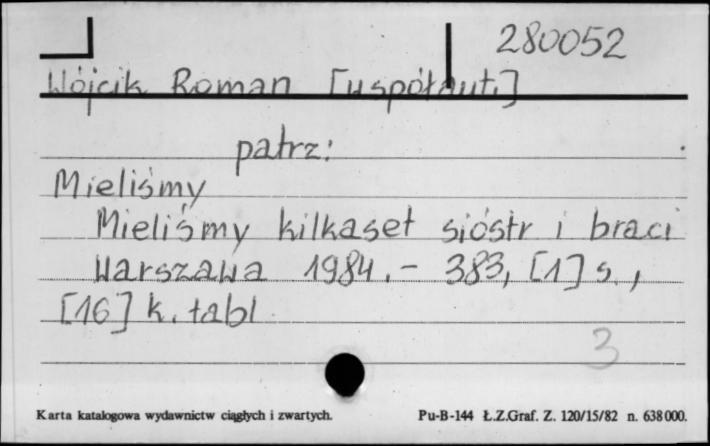 280052
Wójcik Roman [współaut.]
patrz:
Mieliśmy
Mieliśmy kilkaset sióstr i braci
Warszawa 1984.- 383, [1] s.,
[16] k. tabl
3
Karta katalogowa wydawnictw ciągłych i zwartych. Pu-B-144 Ł.Z.Graf. Z. 120/15/82 n. 638000.